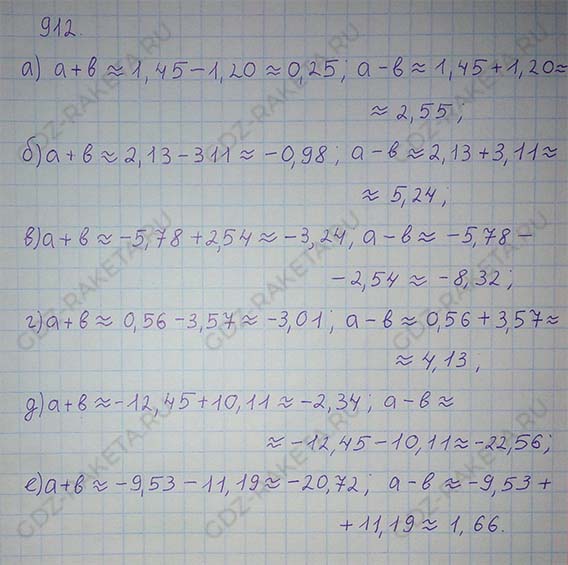 912.
а) a+b ≈ 1,45-1,20 ≈ 0,25; a-b ≈ 1,45+1,20≈
≈ 2,55;
б) a+b ≈ 2,13-311 ≈ -0,98; a-b ≈ 2,13+3,11≈
≈ 5,24;
в) a+b ≈ -5,78+2,54 ≈ -3,24, a-b ≈ -5,78-
-2,54 ≈ -8,32;
г) a+b ≈ 0,56-3,57≈-3,01; a-b ≈ 0,56+3,57≈
≈ 4,13;
д) a+b ≈-12,45+10,11≈-2,34; a-b ≈
≈-12,45-10,11≈-22,56;
е) a+b ≈ -9,53-11,19≈-20,72; a-b ≈-9,53+
+11,19≈ 1,66.
GDZ-RAKETA.RU